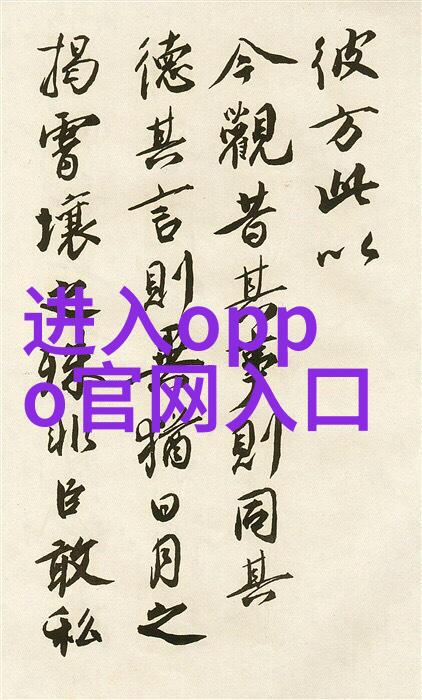 彼方此以
今觀昔其事則同其
德其言則異猶日月之
揭霄壤之殊非臣敢私
进入opp
o官网入口